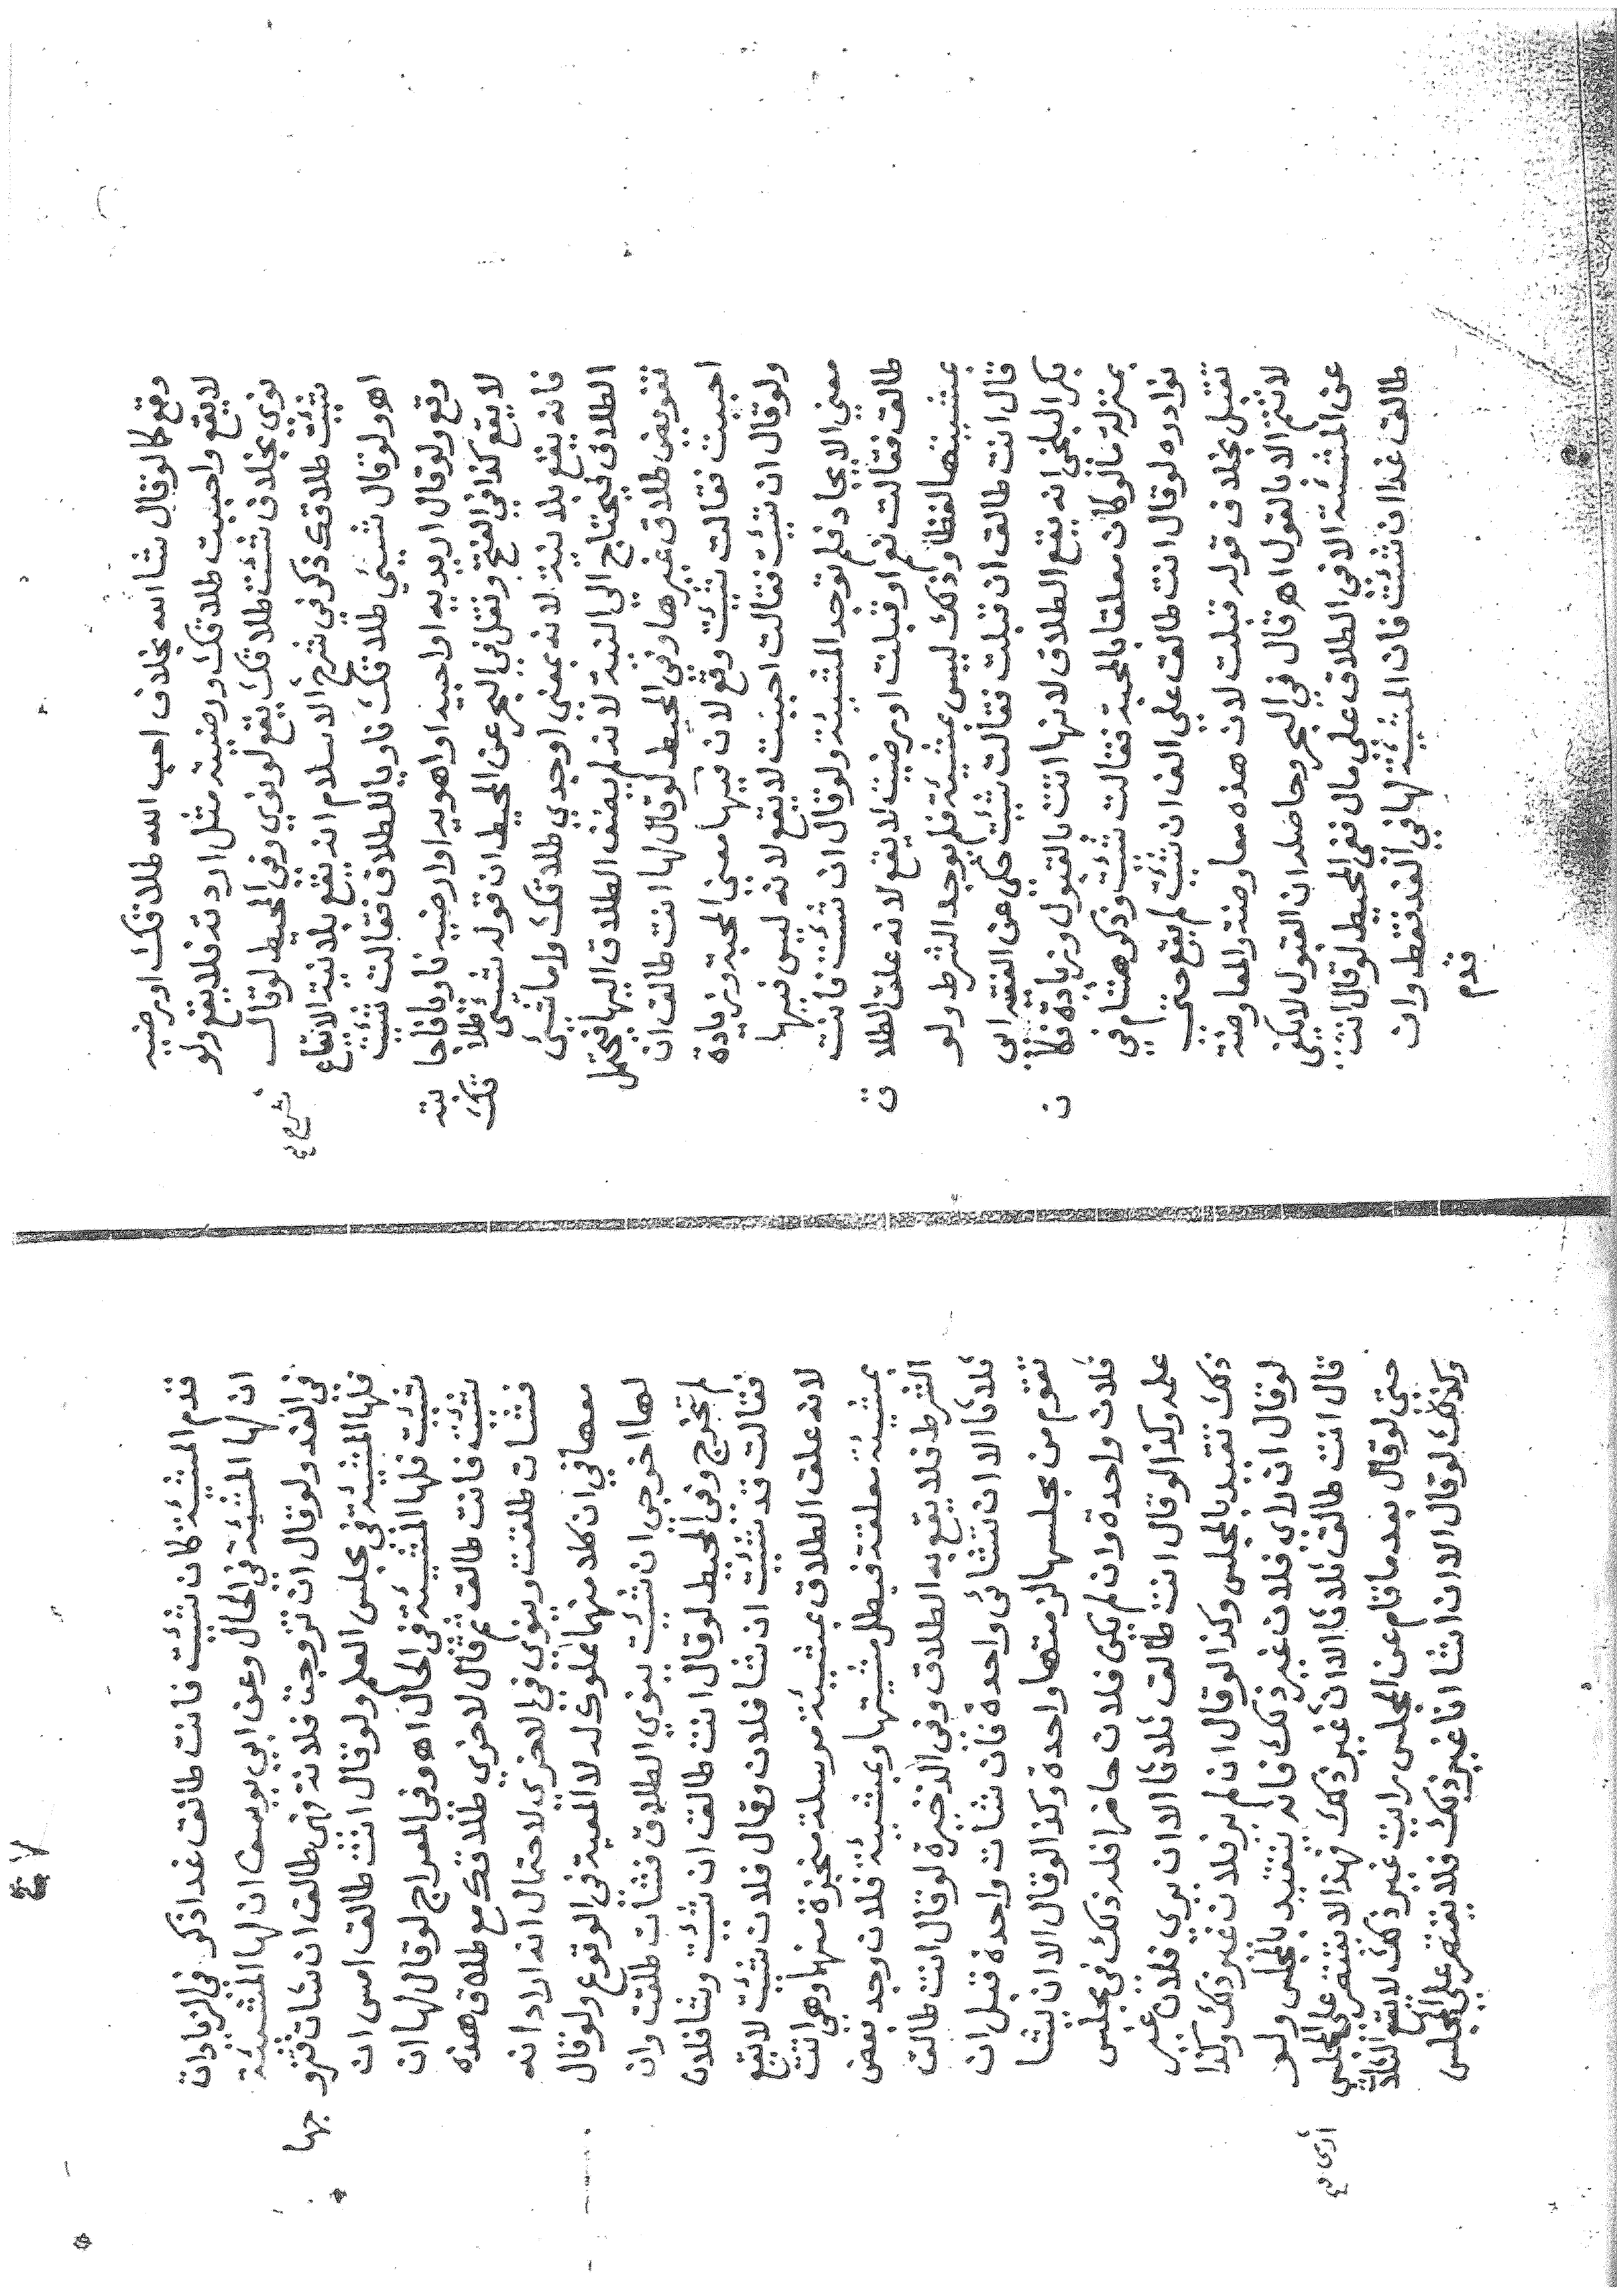 وقع كما لو قال شا الله بخلاف احب الله طلاقك او رضيه
لا يقع واحببت طلاقك ورضيته مثل اردته فلا يقع ولو
نوى بخلاف شئت طلاقك يقع لو نوى وفي المحيط لو قال
شيئت طلاقك ذكر في شرح الاسلام انه يقع بلا نية الايقاع
اهـ ولو قال شيئي طلاقك ناويا للطلاق فقالت شيئت
وقع ولو قال اريديه او احبيه او اهويه او ارضيه ناويا فاجابته
لا يقع كذا في الفتح ونقل في البحر عن المحيط ان قوله شئي طلاقك
فانه يقع بلا نية لانه بمعنى اوجدي طلاقك واما شئي
الطلاق فيحتاج الى النية لانه لم يضف الطلاق اليها فيحتمل
تفويض طلاق غيرها وفي المحيط لو قال لها انت طالق ان
احببت فقالت شيئت وقع لان فيها معنى المحبة وزيادة
ولو قال ان شيئت فقالت احببت لا يقع لانه ليس فيها
معنى الايجاد فلم توجد المشيئة ولو قال ان شئت فانت
طالق فقالت نعم او قبلت او رضيت لا يقع لانه علق الطلاق
بمشيئتها لفظا وذلك ليس بمشيئة فلم يوجد الشرط ولو
قال انت طالق ان قبلت فقالت شيئت حكى عن الفقيه ابي
بكر البلخي انه يقع الطلاق لانها اتت بالقبول وزيادة فكان
بمنزلة ما لو كان معلقا بالمحبة فقالت شئت وذكر هشام في
نوادره لو قال انت طالق على الف ان شئت لم يقع حتى
تقبل بخلاف قوله قبلت لان هذه معاوضة والمعاوضة
لا تتم الا بالقول اهـ قال في البحر وحاصله ان القبول لا يكفي
عن المشيئة الا في الطلاق على مال ففي المحيط لو قال انت
طالق غدا ان شئت فان المشيئة لها في الغد فقط وان
قدم
قدم المشيئة كان شيئت فانت طالق غدا ذكر في الزيادات
ان لها المشيئة في الحال وعن ابي يوسف ان لها المشيئة
في الغد ولو قال ان تزوجت فلانة فهي طالق ان شات فتزوجها
فلها المشيئة في مجلس العلم ولو قال انت طالق امس ان
شيئت فلها المشيئة في الحال اهـ وفي المعراج لو قال لها ان
شيئت فانت طالق ثم قال لاخرى طلاقك مع طلاق هذه
فشات طلقت وينوي في الاخرى لاحتمال انه اراد انه
معها في ان كلا منهما مملوك له لا المعية في الوقوع ولو قال
لها اخرجي ان شيئت ينوي الطلاق فشات طلقت وان
لم تخرج وفي المحيط لو قال انت طالق ان شيئت وشا فلان
فقالت قد شيئت ان شا فلان وقال فلان شيئت لا يقع
لانه علق الطلاق بمشيئة مرسلة منجزة منهما وهي اتت
بمشيئة معلقة فبطل مشيتها وبمشيئة فلان وجد بعض
الشرط فلا يقع به الطلاق وفي الذخيرة لو قال انت طالق
ثلاثا الا ان تشائي واحدة فان شات واحدة قبل ان
تقوم من مجلسها لزمتها واحدة وكذا لو قال الا ان يشا
فلان واحدة وان لم يكن فلان حاضرا فله ذلك في مجلس
علمه وكذا لو قال انت طالق ثلاثا الا ان يرى فلان غير
ذلك تقيد بالمجلس وكذا لو قال ان لم ير فلان غير ذلك وكذا
لو قال ان راى فلان غير ذلك فانه يتقيد بالمجلس ولو
قال انت طالق ثلاثا الا ان غير ذلك فهذا لا يقتصر على المجلس
ارى
حتى لو قال بعد ما قام عن المجلس رايت غير ذلك لا تقع الثلاث
وكذلك لو قال الا ان اشا انا غير ذلك فلا يقتصر على المجلس